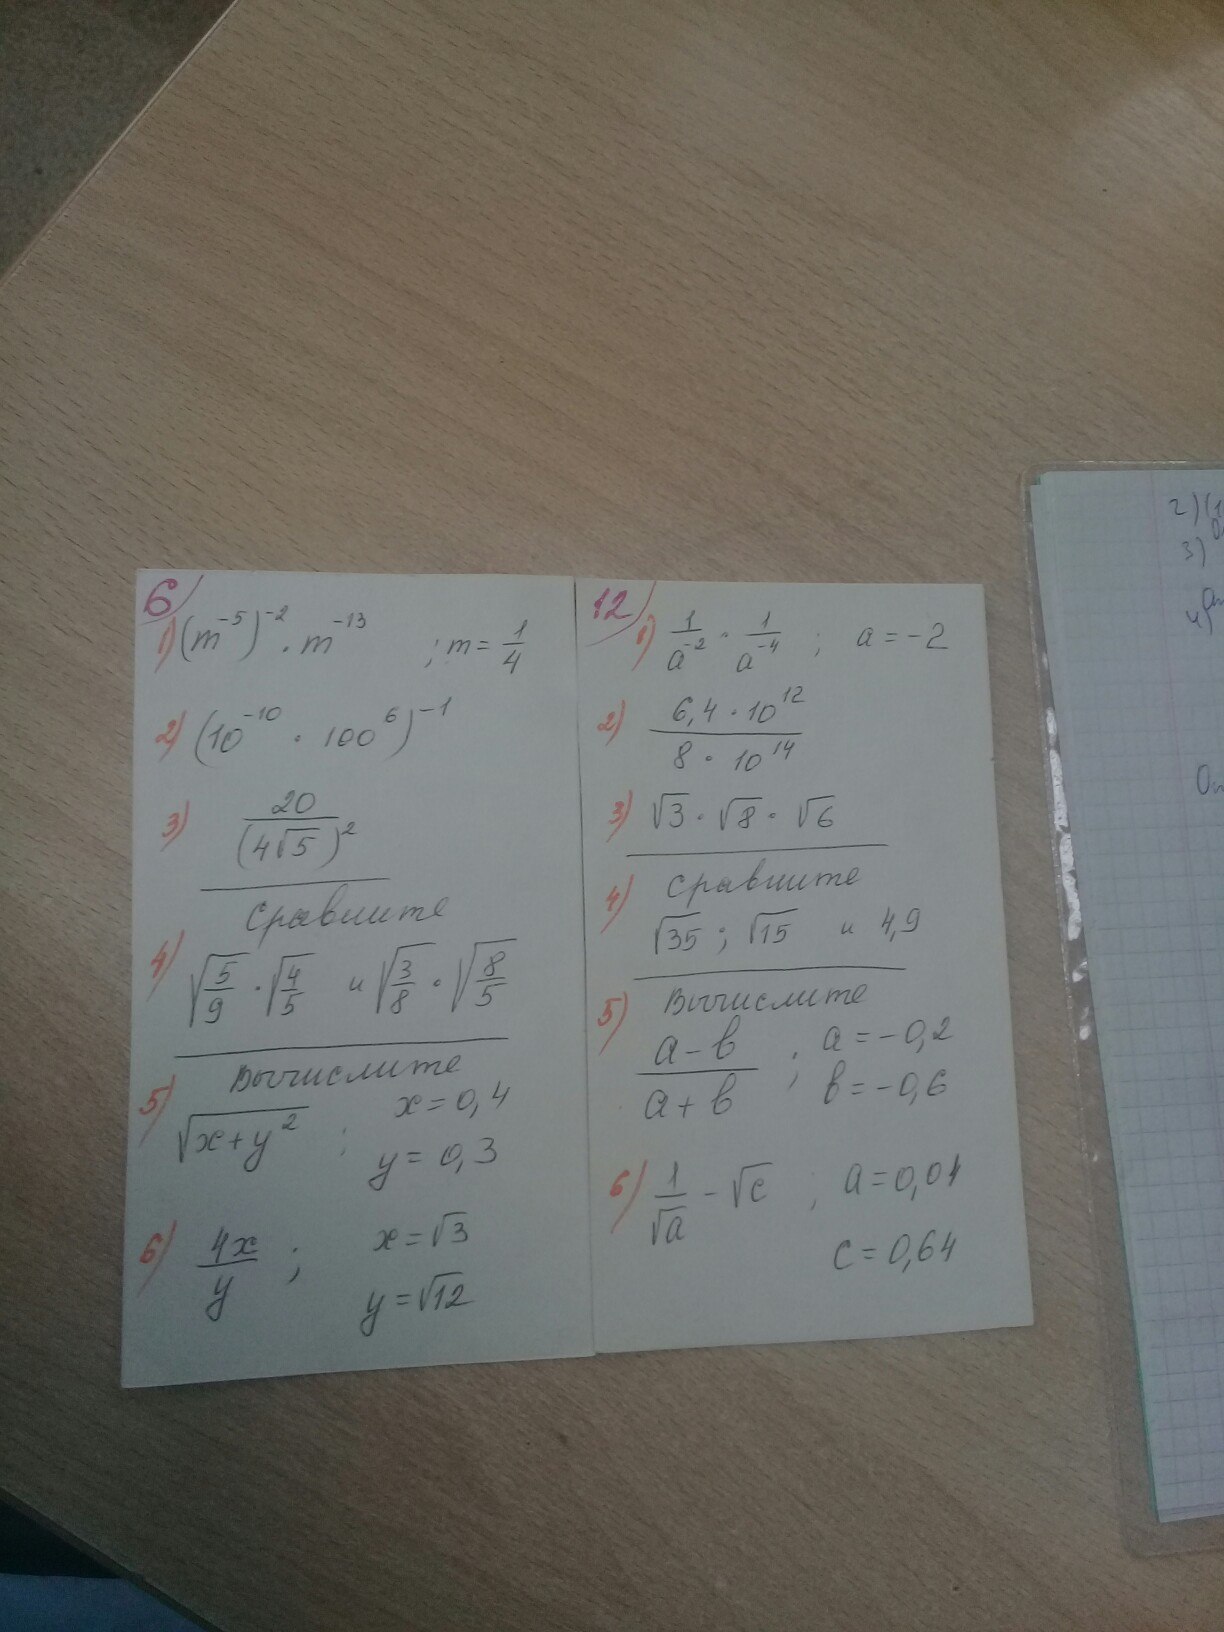 6)
1) (m⁻⁵)⁻² · m⁻¹³ ; m = 1/4
2) (10⁻¹⁰ · 100⁶)⁻¹
3) 20/(4√5)²
Сравните
4) √(5/9) · √(4/5) и √(3/8) · √(8/5)
Вычислите
5) √(x+y²) ; x = 0,4
y = 0,3
6) 4x/y ; x = √3
y = √12
12)
1) 1/a⁻² · 1/a⁻⁴ ; a = -2
2) (6,4 · 10¹²)/(8 · 10¹⁴)
3) √3 · √8 · √6
Сравните
4) √35 ; √15 и 4,9
Вычислите
5) (a - b)/(a + b) ; a = -0,2
b = -0,6
6) 1/√a - √c , a = 0,01
c = 0,64
2) (1
3)
4)